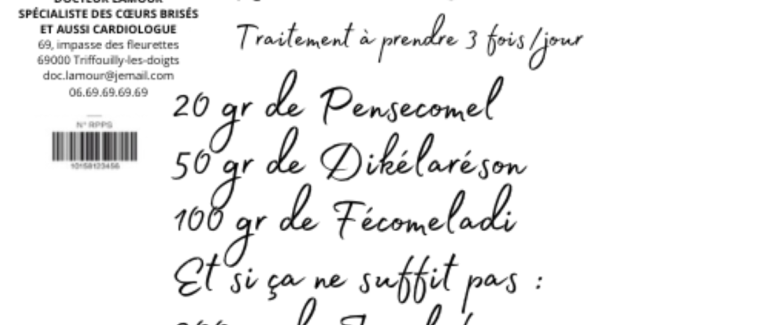 DOCTEUR LAMOUR
SPÉCIALISTE DES CŒURS BRISÉS
ET AUSSI CARDIOLOGUE
69, impasse des fleurettes
69000 Triffouilly-les-doigts
doc.lamour@jemail.com
06.69.69.69.69
N° RPPS
10158123456
Traitement à prendre 3 fois/jour
20 gr de Pensecomel
50 gr de Dikélaréson
100 gr de Fécomeladi
Et si ça ne suffit pas :